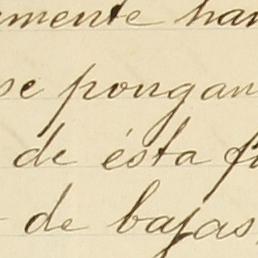 amente han
se pongan
de ésta fi
de bajas,